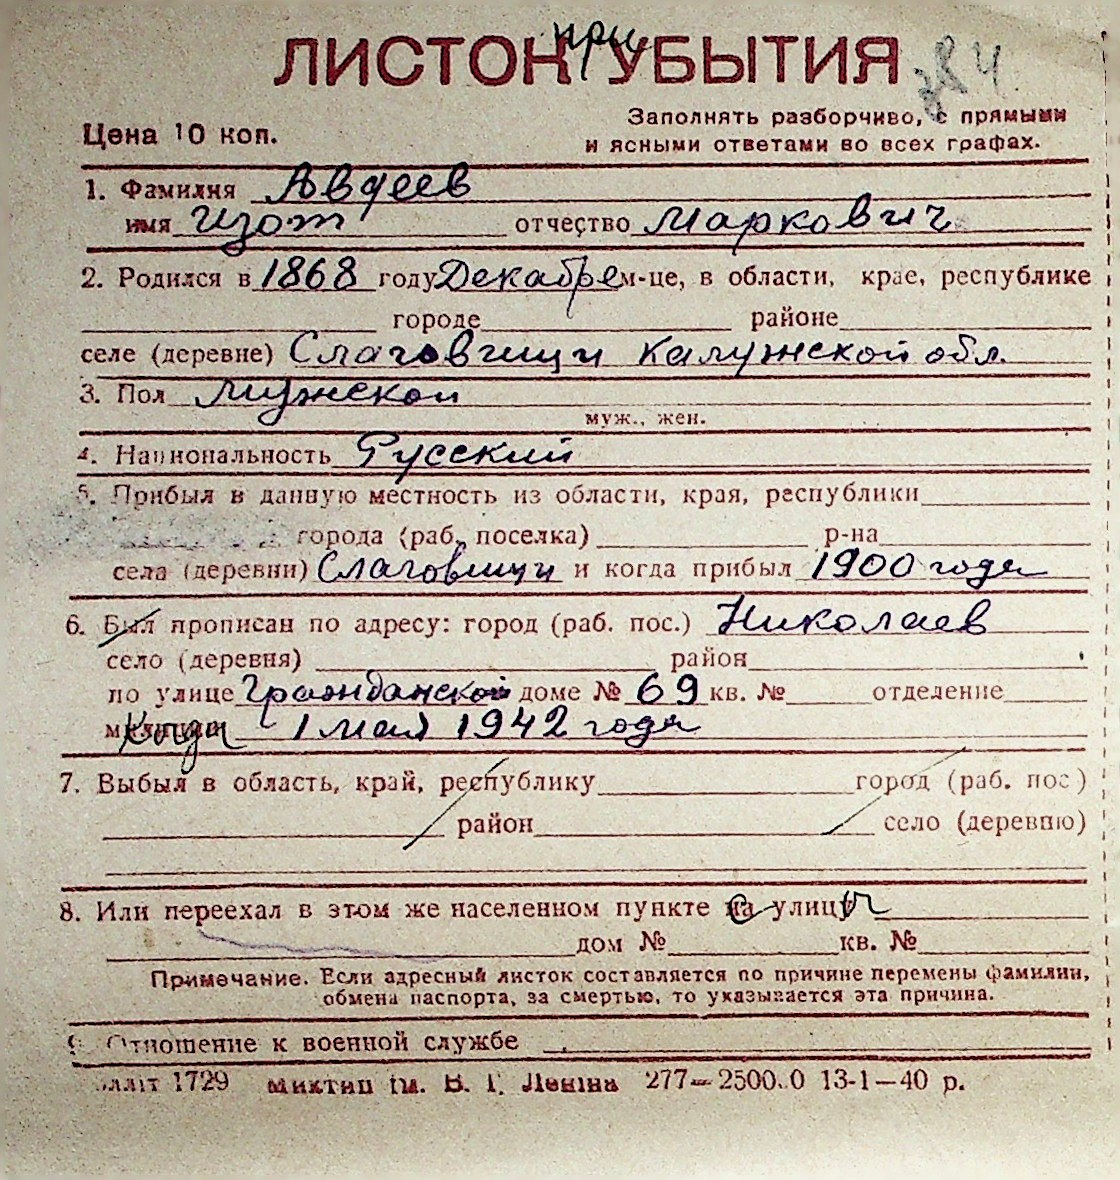 при
ЛИСТОК УБЫТИЯ
Цена 10 коп.
Заполнять разборчиво, с прямыми
и ясными ответами во всех графах.
1. Фамилия Авдеев
имя Изот отчество Маркович
2. Родился в 1868 году Декабре м-це, в области, крае, республике
городе районе
селе (деревне) Слаговищи Калужской обл.
3. Пол Мужской
муж., жен.
4. Национальность Русский
5. Прибыл в данную местность из области, края, республики
города (раб. поселка) р-на
села (деревни) Слаговищи и когда прибыл 1900 года
6. Был прописан по адресу: город (раб. пос.) Николаев
село (деревня) район
по улице Гражданской доме № 69 кв. № отделение
милиции Когда 1 мая 1942 года
7. Выбыл в область, край, республику город (раб. пос)
район село (деревню)
8. Или переехал в этом же населенном пункте на улицу
дом № кв. №
Примечание. Если адресный листок составляется по причине перемены фамилии,
обмена паспорта, за смертью, то указывается эта причина.
9. Отношение к военной службе
1729 ім. В. І. Леніна 277— 13-1—40 р.